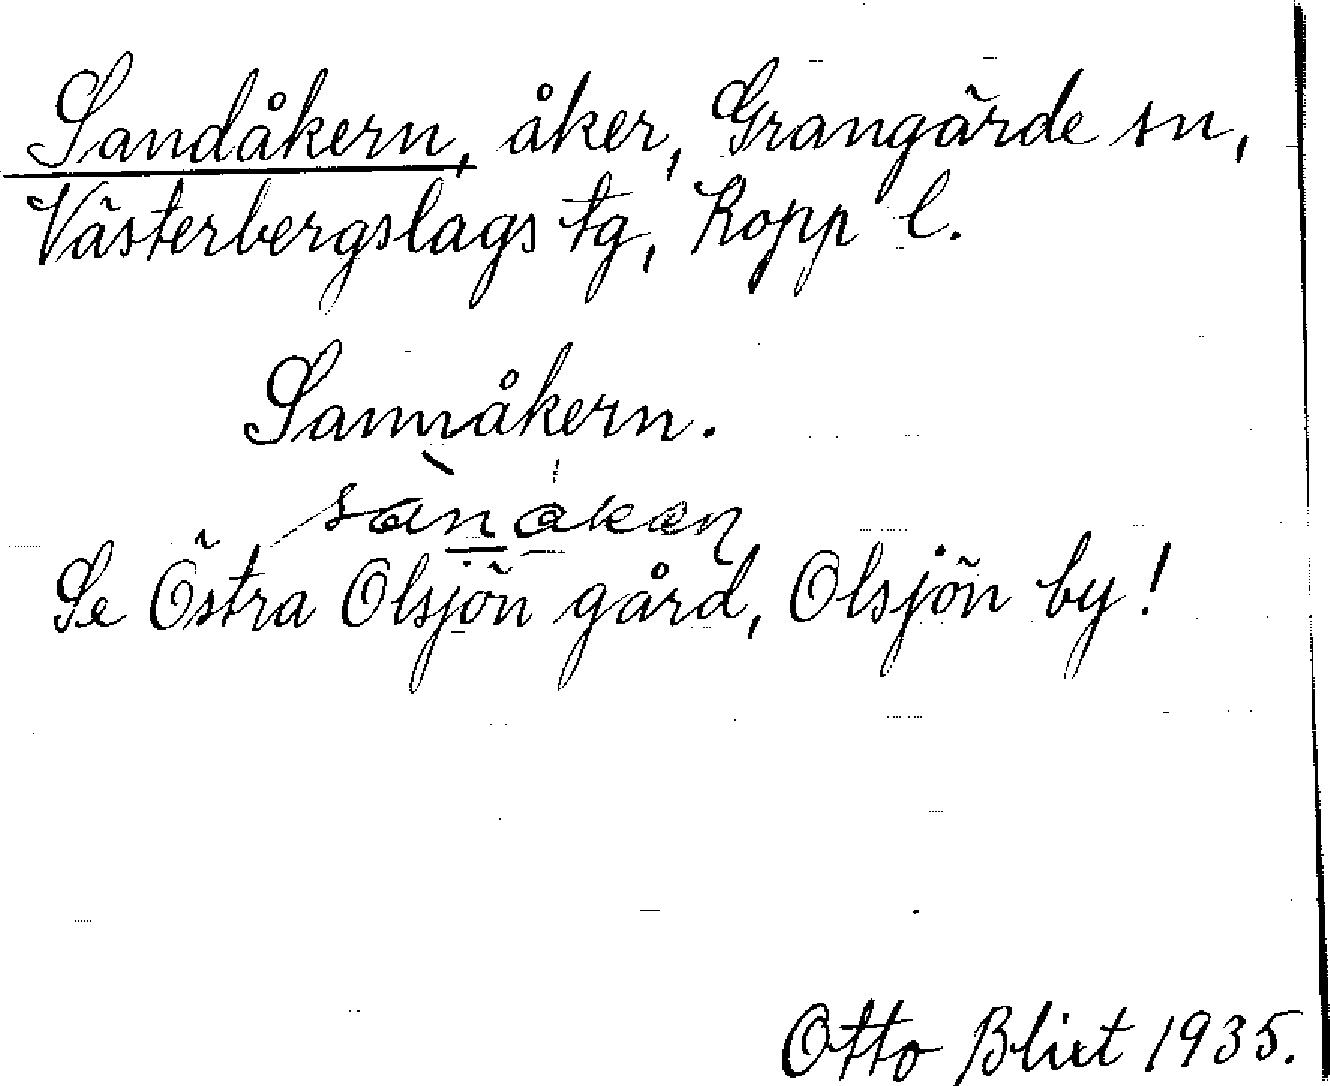 Sandåkern, åker, Grangärde sn,
Västerbergslags tg, Kopp l.
Sannåkern.
Se Östra Olsjön gård, Olsjön by!
Otto Blixt 1935.